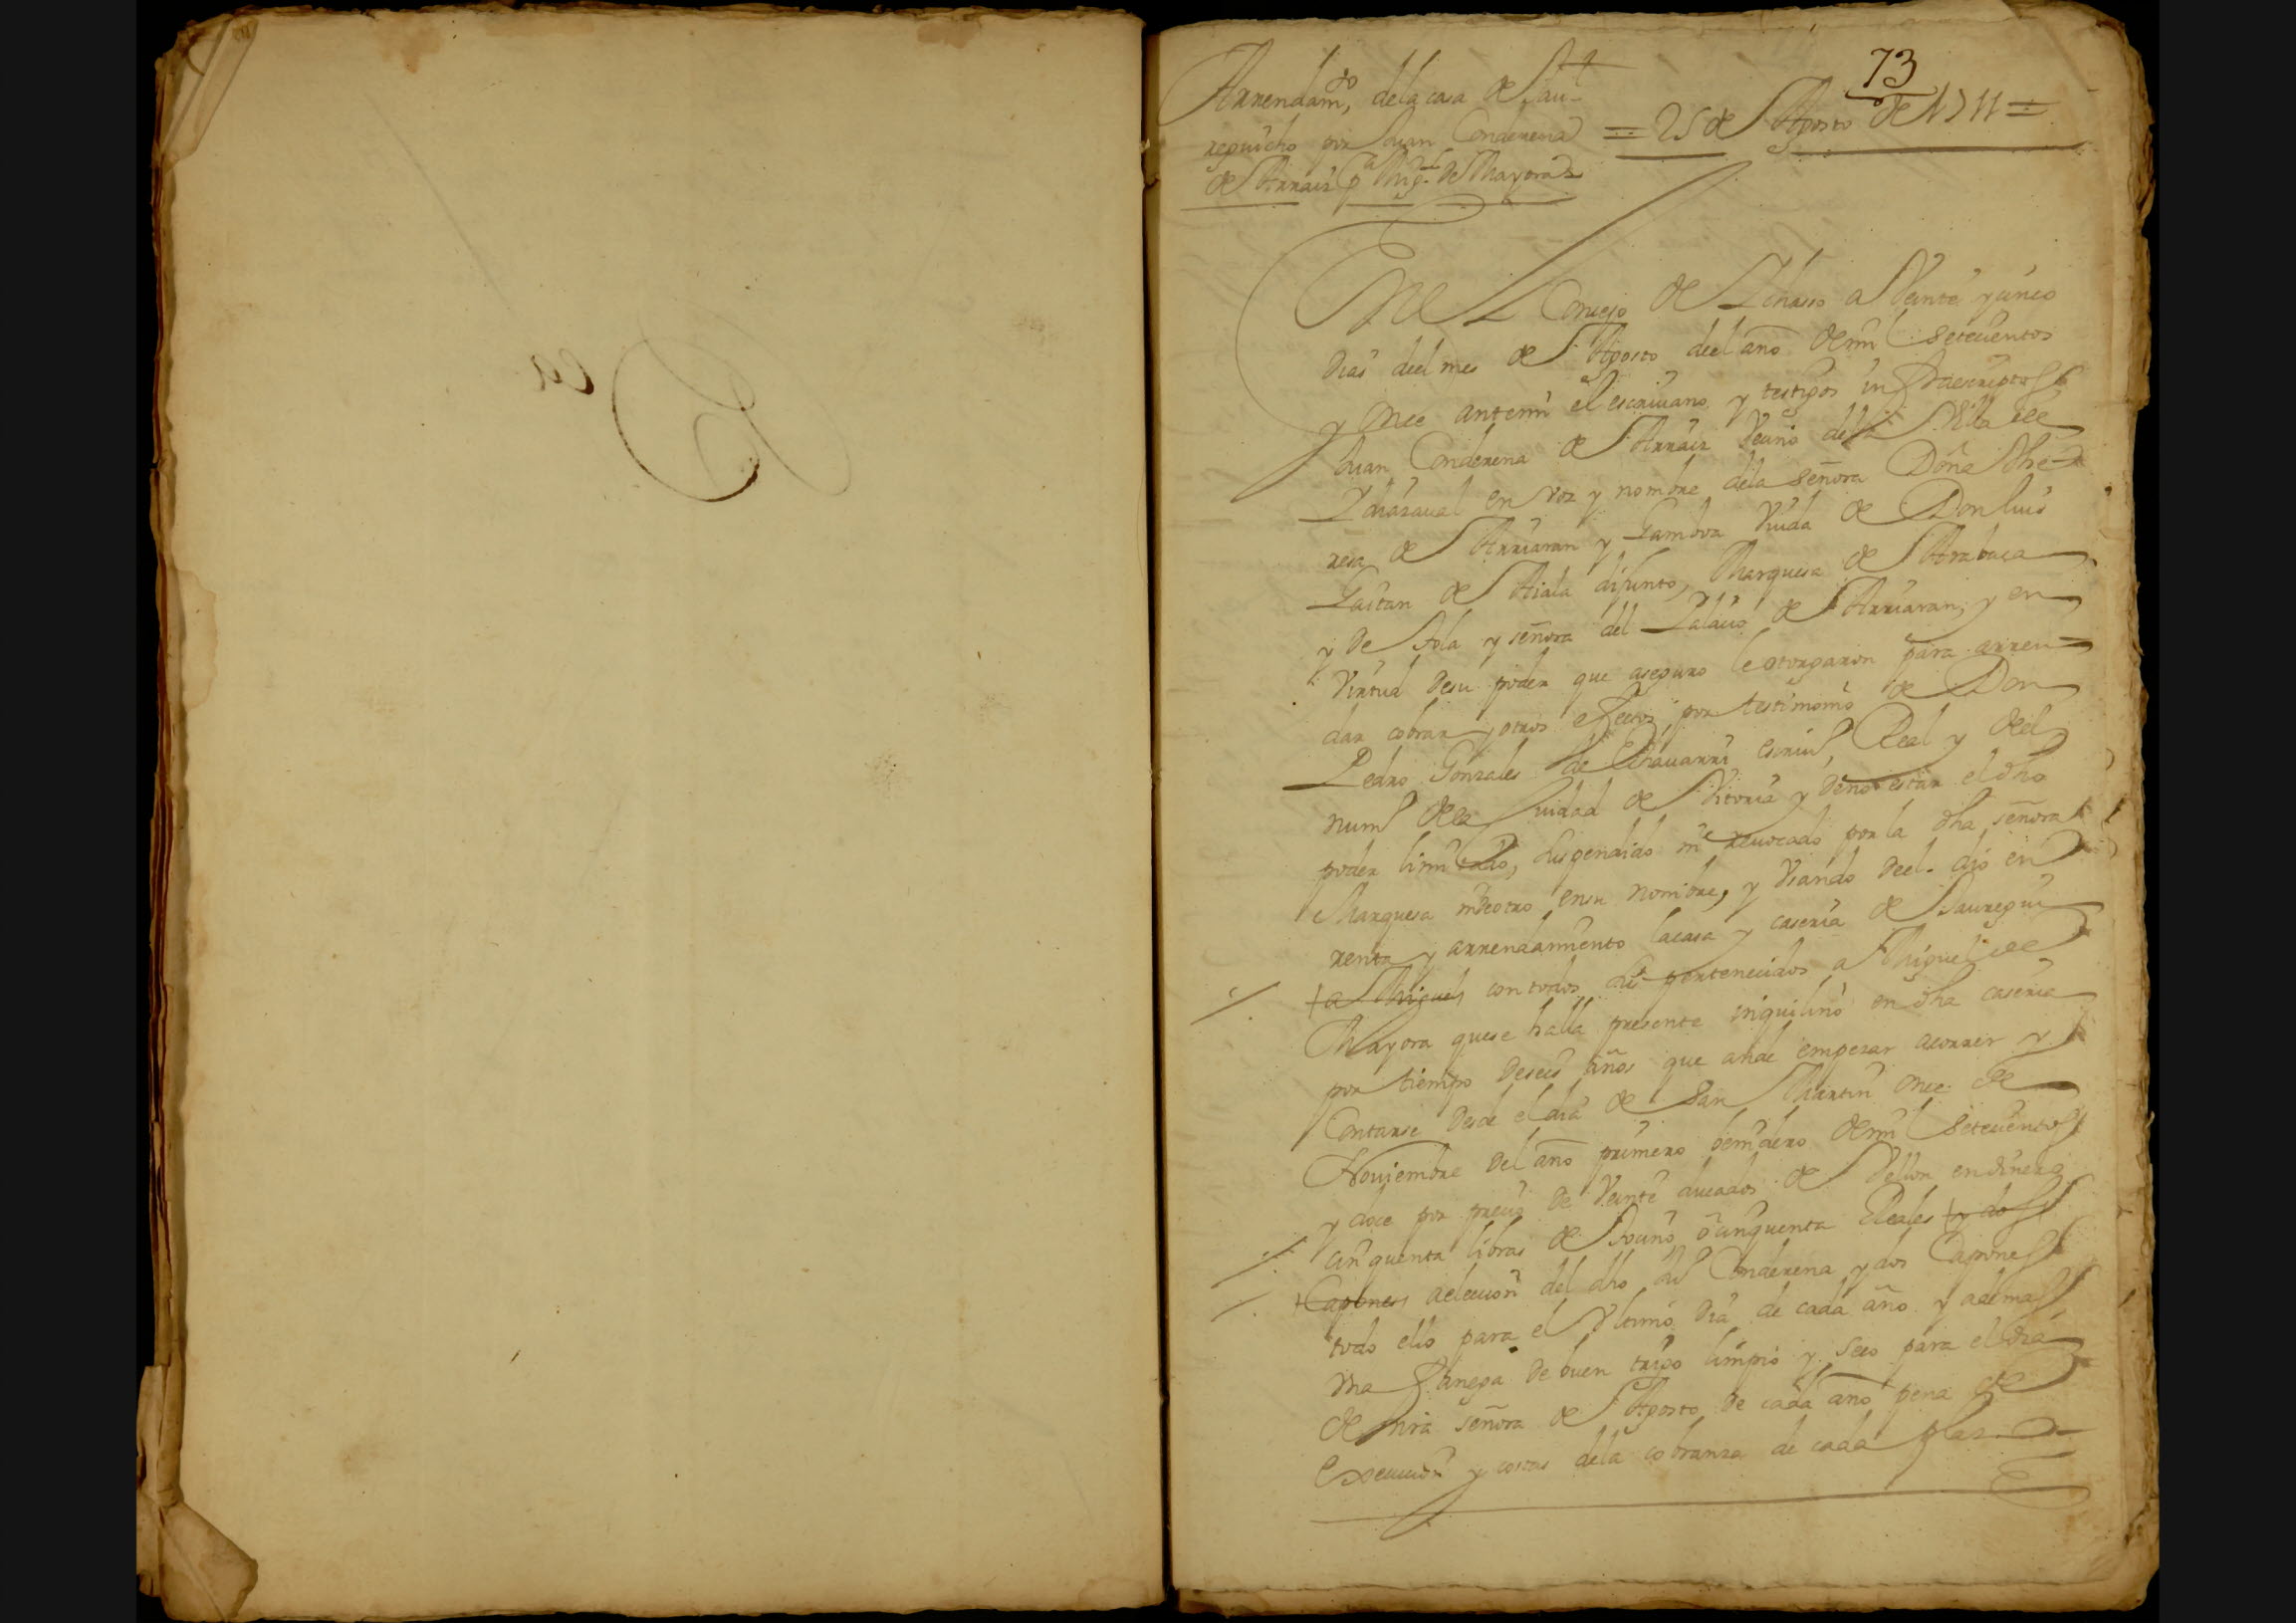 73
Arrendam.to dela casa de Jau-
reguicho por Juan Conderena
de Arraiz Pa Migl. de Mayora
= 25 de Agosto de 1711 =
En el Concejo de Ichasso a Veinte y cinco
dias del mes de Agosto deel año de mil setecientos
y once antemi el escriuano y testigos infraescriptos
Juan Conderena de Arraiz Vecino dela Villa de
Villarreal en voz y nombre dela señora Doña The-
resa de Arriaran y Gamboa Viuda de Don Luis
Gaitan de Aiala difunto, Marquesa de Arabaca
y de Sola y señora del Palacio de Arriaran, y en
Virtud desu poder que aseguro le otorgaron para arren-
dar cobrar y otros efectos por testimonio de Don
Pedro Gonzales de Echauarri escriuo Real y del
numo dela Ciudad de Vitoria y de no estar el dho
poder limitado, suspendido ni reuocado por la dha señora
Marquesa ni de otro en su nombre, y Vsando deel. dio en
renta y arrendamiento la casa y caseria de Jauregui
a Miguel con todos sus pertenecidos a Miguel de
Mayora que se halla presente inquilino en dha caseria
por tiempo de seis años que ande empezar acorrer y
Contarse desde el dia de San Martin once de
Nouiembre del año primero benidero de mil Setecientos
y doce por precio de Veinte ducados de Vellon en dinero
cinquenta libras de tocino o cinquenta Reales y dos
Capones aeleccion del dho Conderena y dos Capones
todo ello para el Vltimo dia de cada año y ademas
vna fanega de buen trigo limpio y seco para el dia
de nra señora de Agosto de cada año pena de
execucion y costas dela cobranza de cada plazo